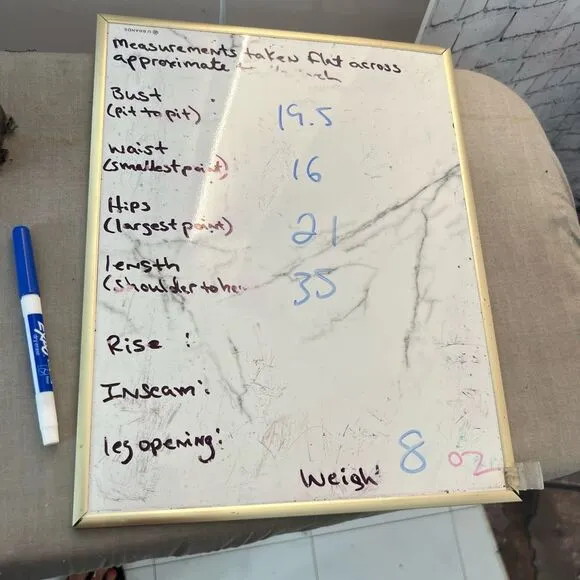 U BRANDS
Measurements taken flat across
approximate
Bust
(pit to pit) 19.5
waist
(smallest point) 16
Hips
(largest point) 21
length
(shoulder to he 35
Rise :
Inseam:
leg opening:
Weigh: 8 oz
EXPO